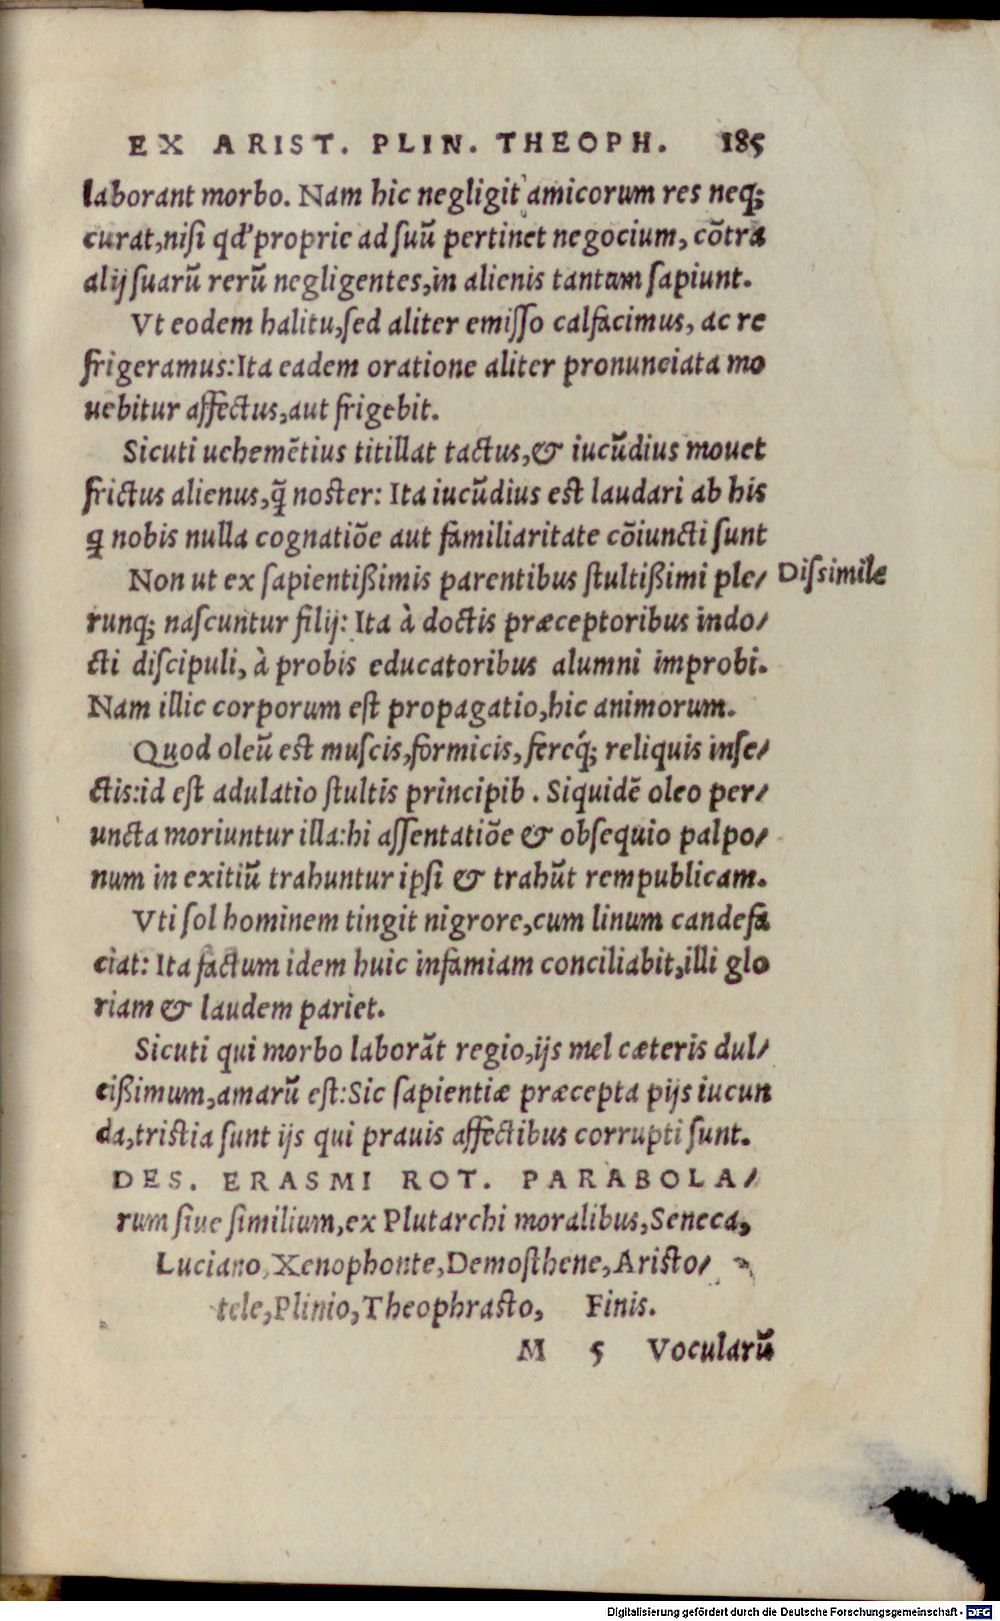 EX ARIST. PLIN. THEOPH. 185
laborant morbo. Nam hic negligit amicorum res neq;
curat,niſi qd' proprie ad ſuũ pertinet negocium, cõtra
alij ſuarũ rerũ negligentes,in alienis tantum ſapiunt.
Vt eodem halitu,ſed aliter emiſſo calfacimus, ac re
frigeramus:Ita eadem oratione aliter pronunciata mo
uebitur affectus,aut frigebit.
Sicuti uehemẽtius titillat tactus,& iucũdius mouet
frictus alienus,q̃ noster: Ita iucũdius est laudari ab his
q nobis nulla cognatiõe aut familiaritate cõiuncti ſunt
Non ut ex ſapientißimis parentibus ſtultißimi ple/ Diſsimile
runq; naſcuntur filij: Ita à doctis præceptoribus indo/
cti diſcipuli, à probis educatoribus alumni improbi.
Nam illic corporum eſt propagatio,hic animorum.
Quod oleũ est muſcis,formicis, ferèq; reliquis inſe/
ctis:id eſt adulatio ſtultis principib. Siquidẽ oleo per/
uncta moriuntur illa:hi aſſentatiõe & obſequio palpo/
num in exitiũ trahuntur ipſi & trahũt rempublicam.
Vti ſol hominem tingit nigrore,cum linum candefa
ciat: Ita factum idem huic infamiam conciliabit,illi glo
riam & laudem pariet.
Sicuti qui morbo laborãt regio,ijs mel cæteris dul/
cißimum,amarũ eſt:Sic ſapientiæ præcepta pijs iucun
da,tristia ſunt ijs qui prauis affectibus corrupti ſunt.
DES. ERASMI ROT. PARABOLA/
rum ſiue ſimilium,ex Plutarchi moralibus,Seneca,
Luciano,Xenophonte,Demoſthene,Aristo/
tele,Plinio,Theophrasto, Finis.
M 5 Vocularũ
Digitalisierung gefördert durch die Deutsche Forschungsgemeinschaft - DFG